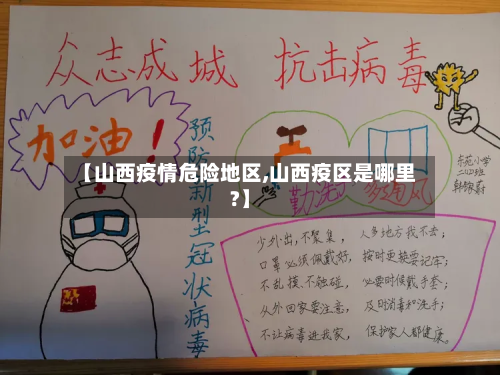 众志成城 抗击病毒
加油！
预防新型冠状病毒
【山西疫情危险地区,山西疫区是哪里
?】
勤洗
多通风
东苑小学
二四班
少外出,不聚集,人多地方我不去；
口罩必须佩戴好,按时更换要记牢；
不乱摸、不触碰,必要时候戴手套；
从外回家要注意,及时消毒和洗手；
不让病毒进我家,保护家人都健康。